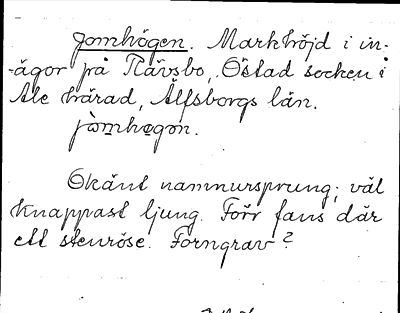 Jomhögen. Markhöjd i in-
-ägor på Rävsbo, Östad socken i
Ale härad, Älfsborgs län.
jòmhøgon.
Okänt namnursprung; väl
knappast ljung. Förr fans där
ett stenröse. Forngrav?